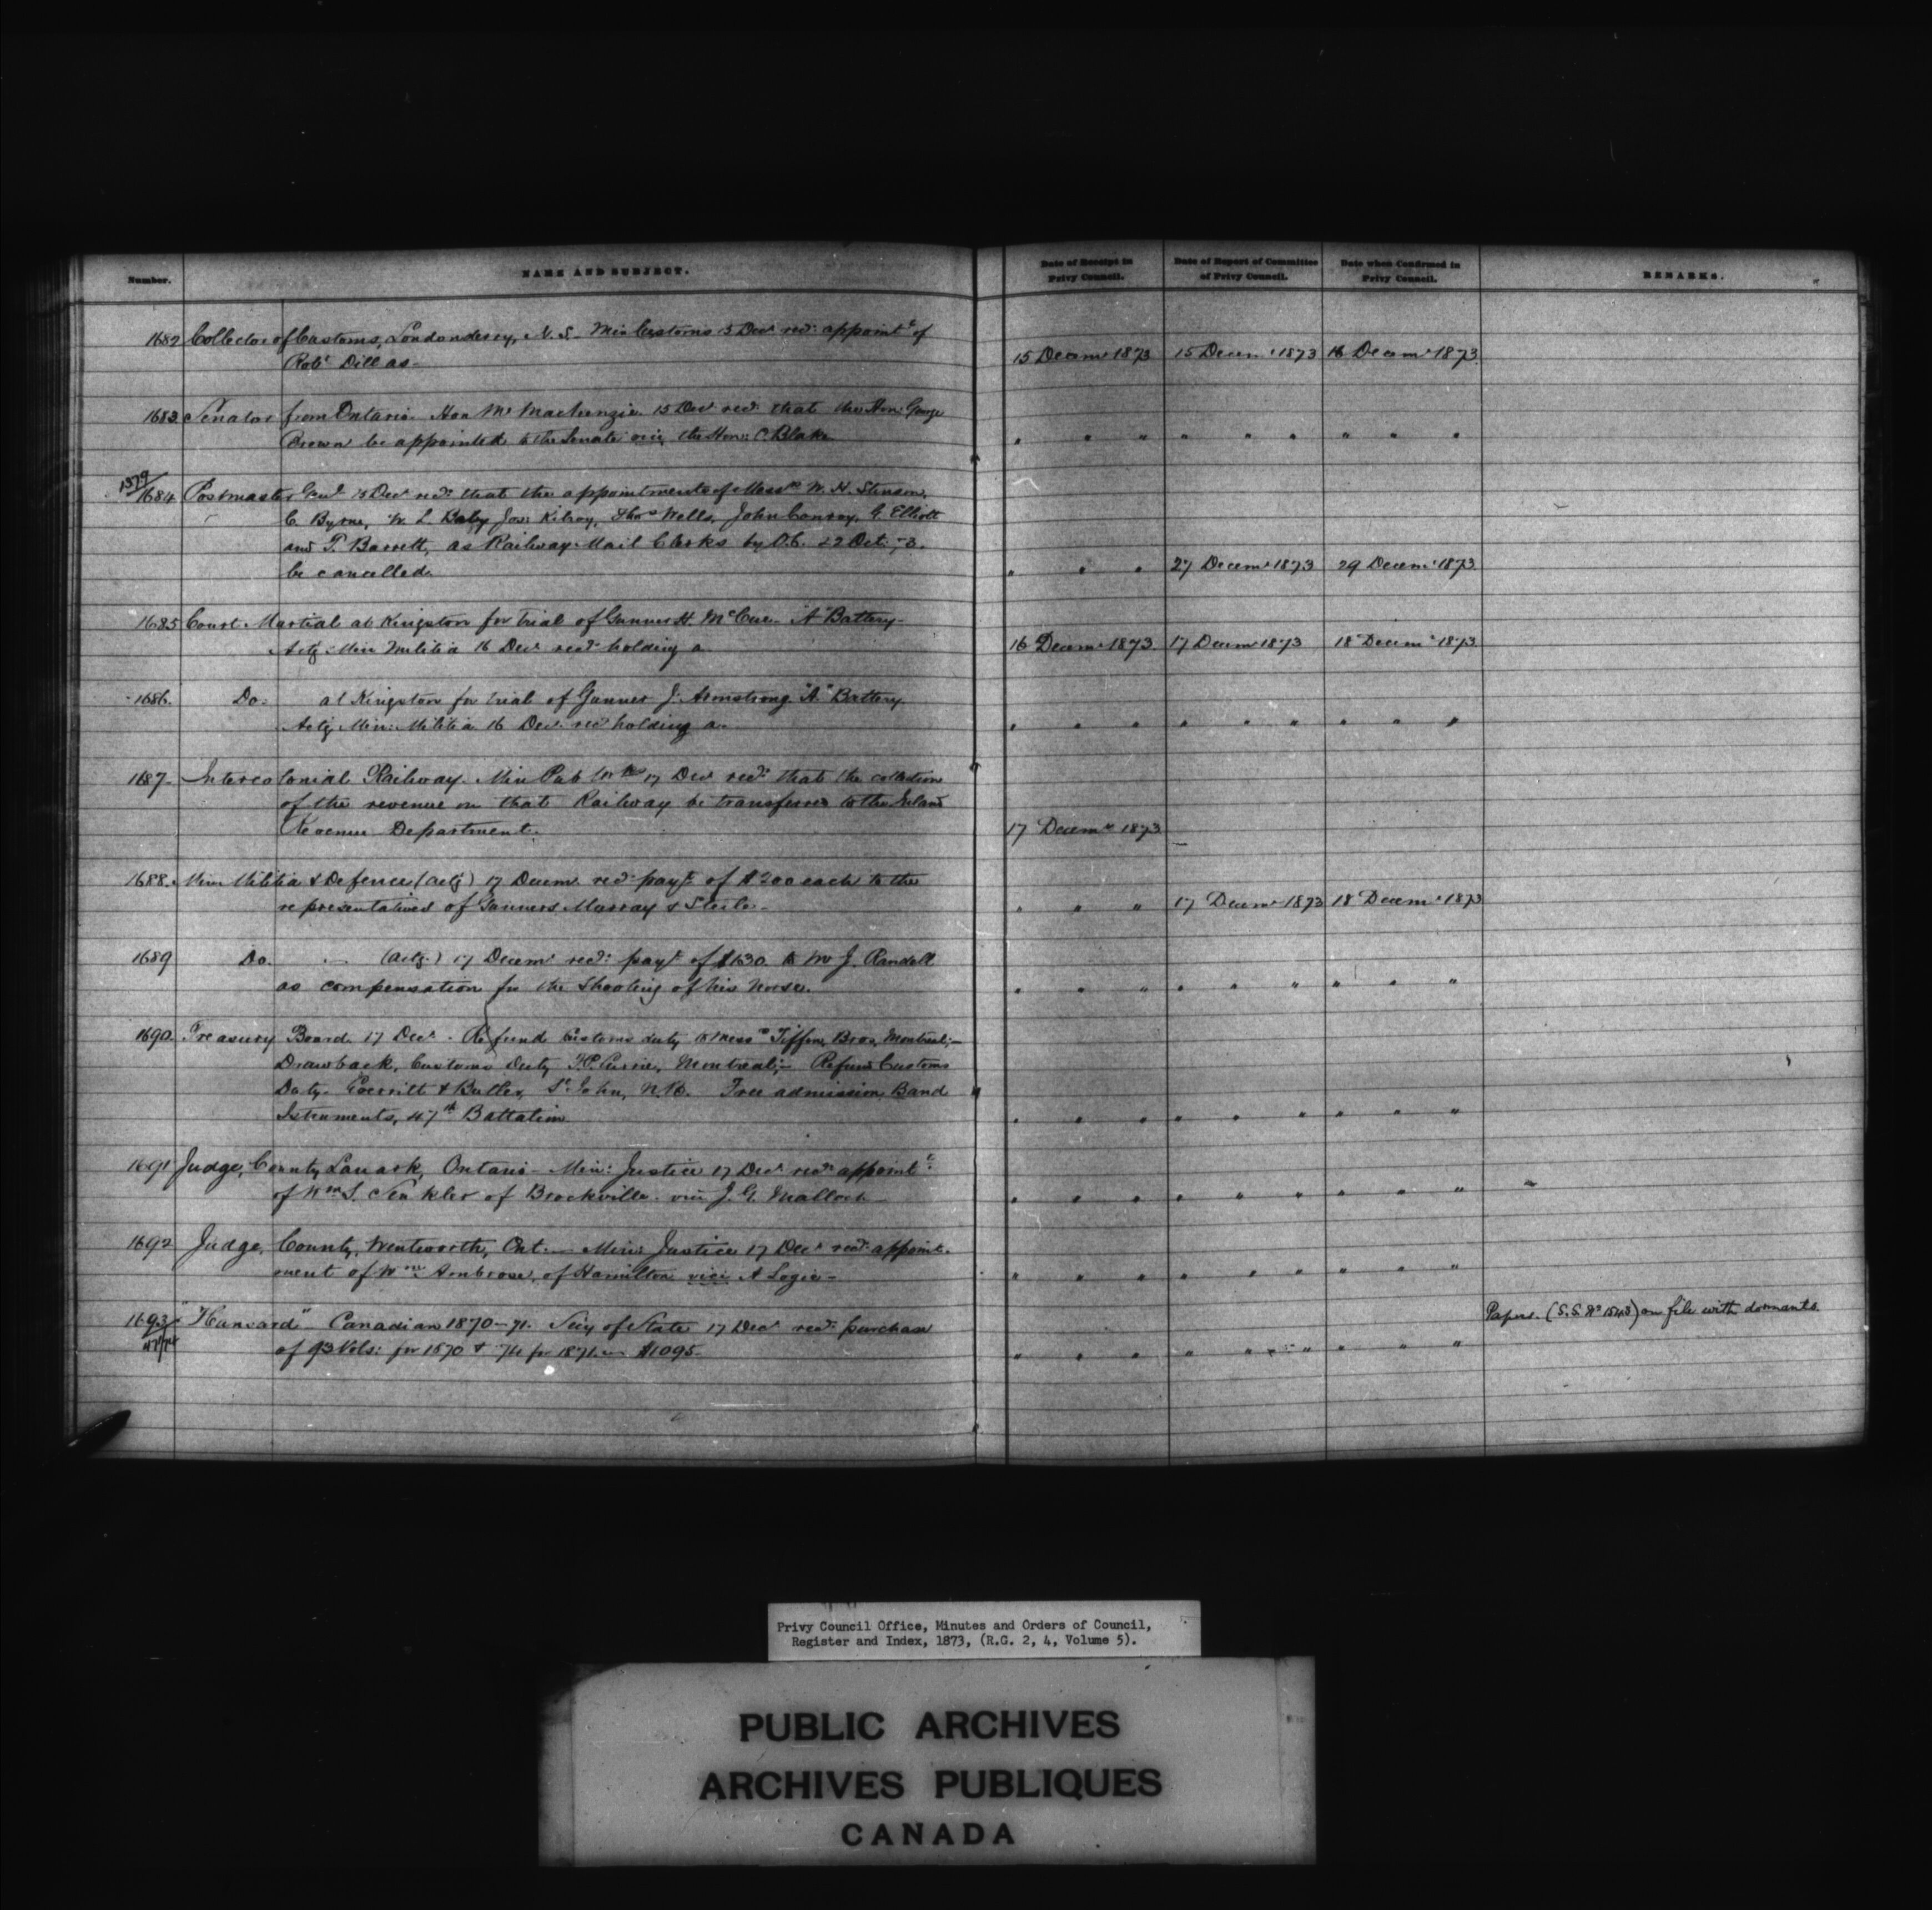 Number. NAME AND SUBJECT. Date of Receipt in Privy Council. Date of Report of Committee of Privy Council. Date when Confirmed in Privy Council. REMARKS.
1682 Collector of Customs, Londonderry, N.S. Min Customs 15 Decr recs appointt of
Robt Dill as - 15 Decemr 1873 15 Decemr 1873 16 Decemr 1873
1683 Senator from Ontario. Hon Mr Mackenzie 15 Decr recs that the Hon: George
Brown be appointed to the Senate vice the Hon: C. Blake " " " " " " " " "
1379/1684 Postmaster Genl 15 Decr recs that the appointments of Messrs W. H. Stinson,
C. Byrne, W. L. Baby Jos: Kilroy, Thos Wells, John Conroy, G. Elliott
and T. Barrett, as Railway Mail Clerks by O.C. 22 Oct:
be cancelled. " " " 27 Decemr 1873 29 Decemr 1873
1685 Court Martial at Kingston for trial of Gunner H. McCue - "A" Battery -
Actg Min Militia 16 Decr recs holding a 16 Decemr 1873. 17 Decemr 1873 18 Decemr 1873
1686. Do: at Kingston for trial of Gunner J. Armstrong "A" Battery
Actg Min: Militia 16 Decr recs holding a - " " " " " " " " "
1687 - Intercolonial Railway. Min Pub Wks 17 Decr recs that the collection
of the revenue on that Railway be transferred to the Inland
Revenue Department. 17 Decemr 1873
1688. Min Militia & Defence (Actg) 17 Decemr recs payt of $200 each to the
representatives of Gunners Murray & Steele - " " " 17 Decemr 1873 18 Decemr 1873
1689 Do. - (Actg.) 17 Decemr recs payt of $130 to Mr J. Randell
as compensation for the shooting of his Horse. " " " " " " " " "
1690. Treasury Board 17 Decr - Refund Customs duty to Messrs Tiffin Bros, Montreal; -
Drawback, Customs Duty Montreal; - Refund Customs
Duty - Everitt & Butler, St John, N.B. Free admission, Band
Istruments, 47th Battalion " " " " " " " " "
1691 Judge, County Lanark, Ontario - Min: Justice 17 Decr recs appointt
of Wm S. Senkler of Brockville - vice J. G. Malloch - " " " " " " " " "
1692 Judge, County, Wentworth, Ont. - Min: Justice 17 Decr recs appoint-
ment of Wm Ambrose, of Hamilton vice A Logie - " " " " " " " " "
1693 "Hansard" - Canadian 1870-71. Secy of State 17 Decr recs purchase Papers. (S.S. No 1543) on file with dormants.
of 93 Vols: for 1870 & 74 for 1871 - $1095 - " " " " " " " " "
Privy Council Office, Minutes and Orders of Council,
Register and Index, 1873, (R.G. 2, 4, Volume 5).
PUBLIC ARCHIVES
ARCHIVES PUBLIQUES
CANADA